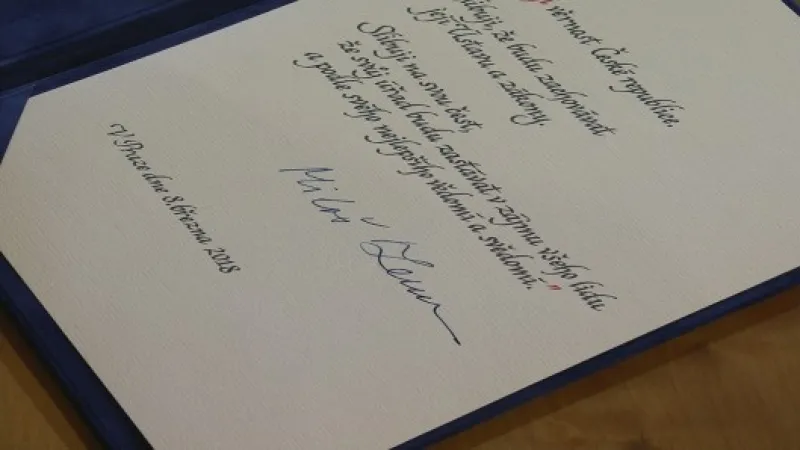 věrnost České republice.
ibuji, že budu zachovávat
její Ústavu a zákony.
Slibuji na svou čest,
že svůj úřad budu zastávat v zájmu všeho lidu
a podle svého nejlepšího vědomí a svědomí."
Miloš Zeman
V Praze dne 8. března 2018